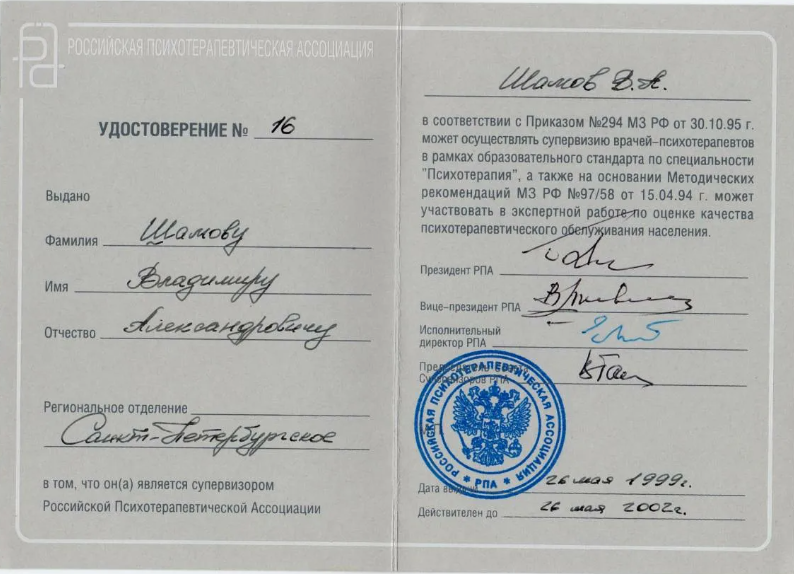 РОССИЙСКАЯ ПСИХОТЕРАПЕВТИЧЕСКАЯ АССОЦИАЦИЯ
УДОСТОВЕРЕНИЕ № 16
Выдано
Фамилия Шамову
Имя Владимиру
Отчество Александровичу
Региональное отделение
Санкт-Петербургское
в том, что он(а) является супервизором
Российской Психотерапевтической Ассоциации
Шамов В.А.
в соответствии с Приказом №294 МЗ РФ от 30.10.95 г.
может осуществлять супервизию врачей-психотерапевтов
в рамках образовательного стандарта по специальности
"Психотерапия", а также на основании Методических
рекомендаций МЗ РФ №97/58 от 15.04.94 г. может
участвовать в экспертной работе по оценке качества
психотерапевтического обслуживания населения.
Президент РПА
Вице-президент РПА
Исполнительный
директор РПА
Супервизоров РПА
РОССИЙСКАЯ ПСИХОТЕРАПЕВТИЧЕСКАЯ АССОЦИАЦИЯ
* РПА *
Дата 26 мая 1999г.
Действителен до 26 мая 2002г.